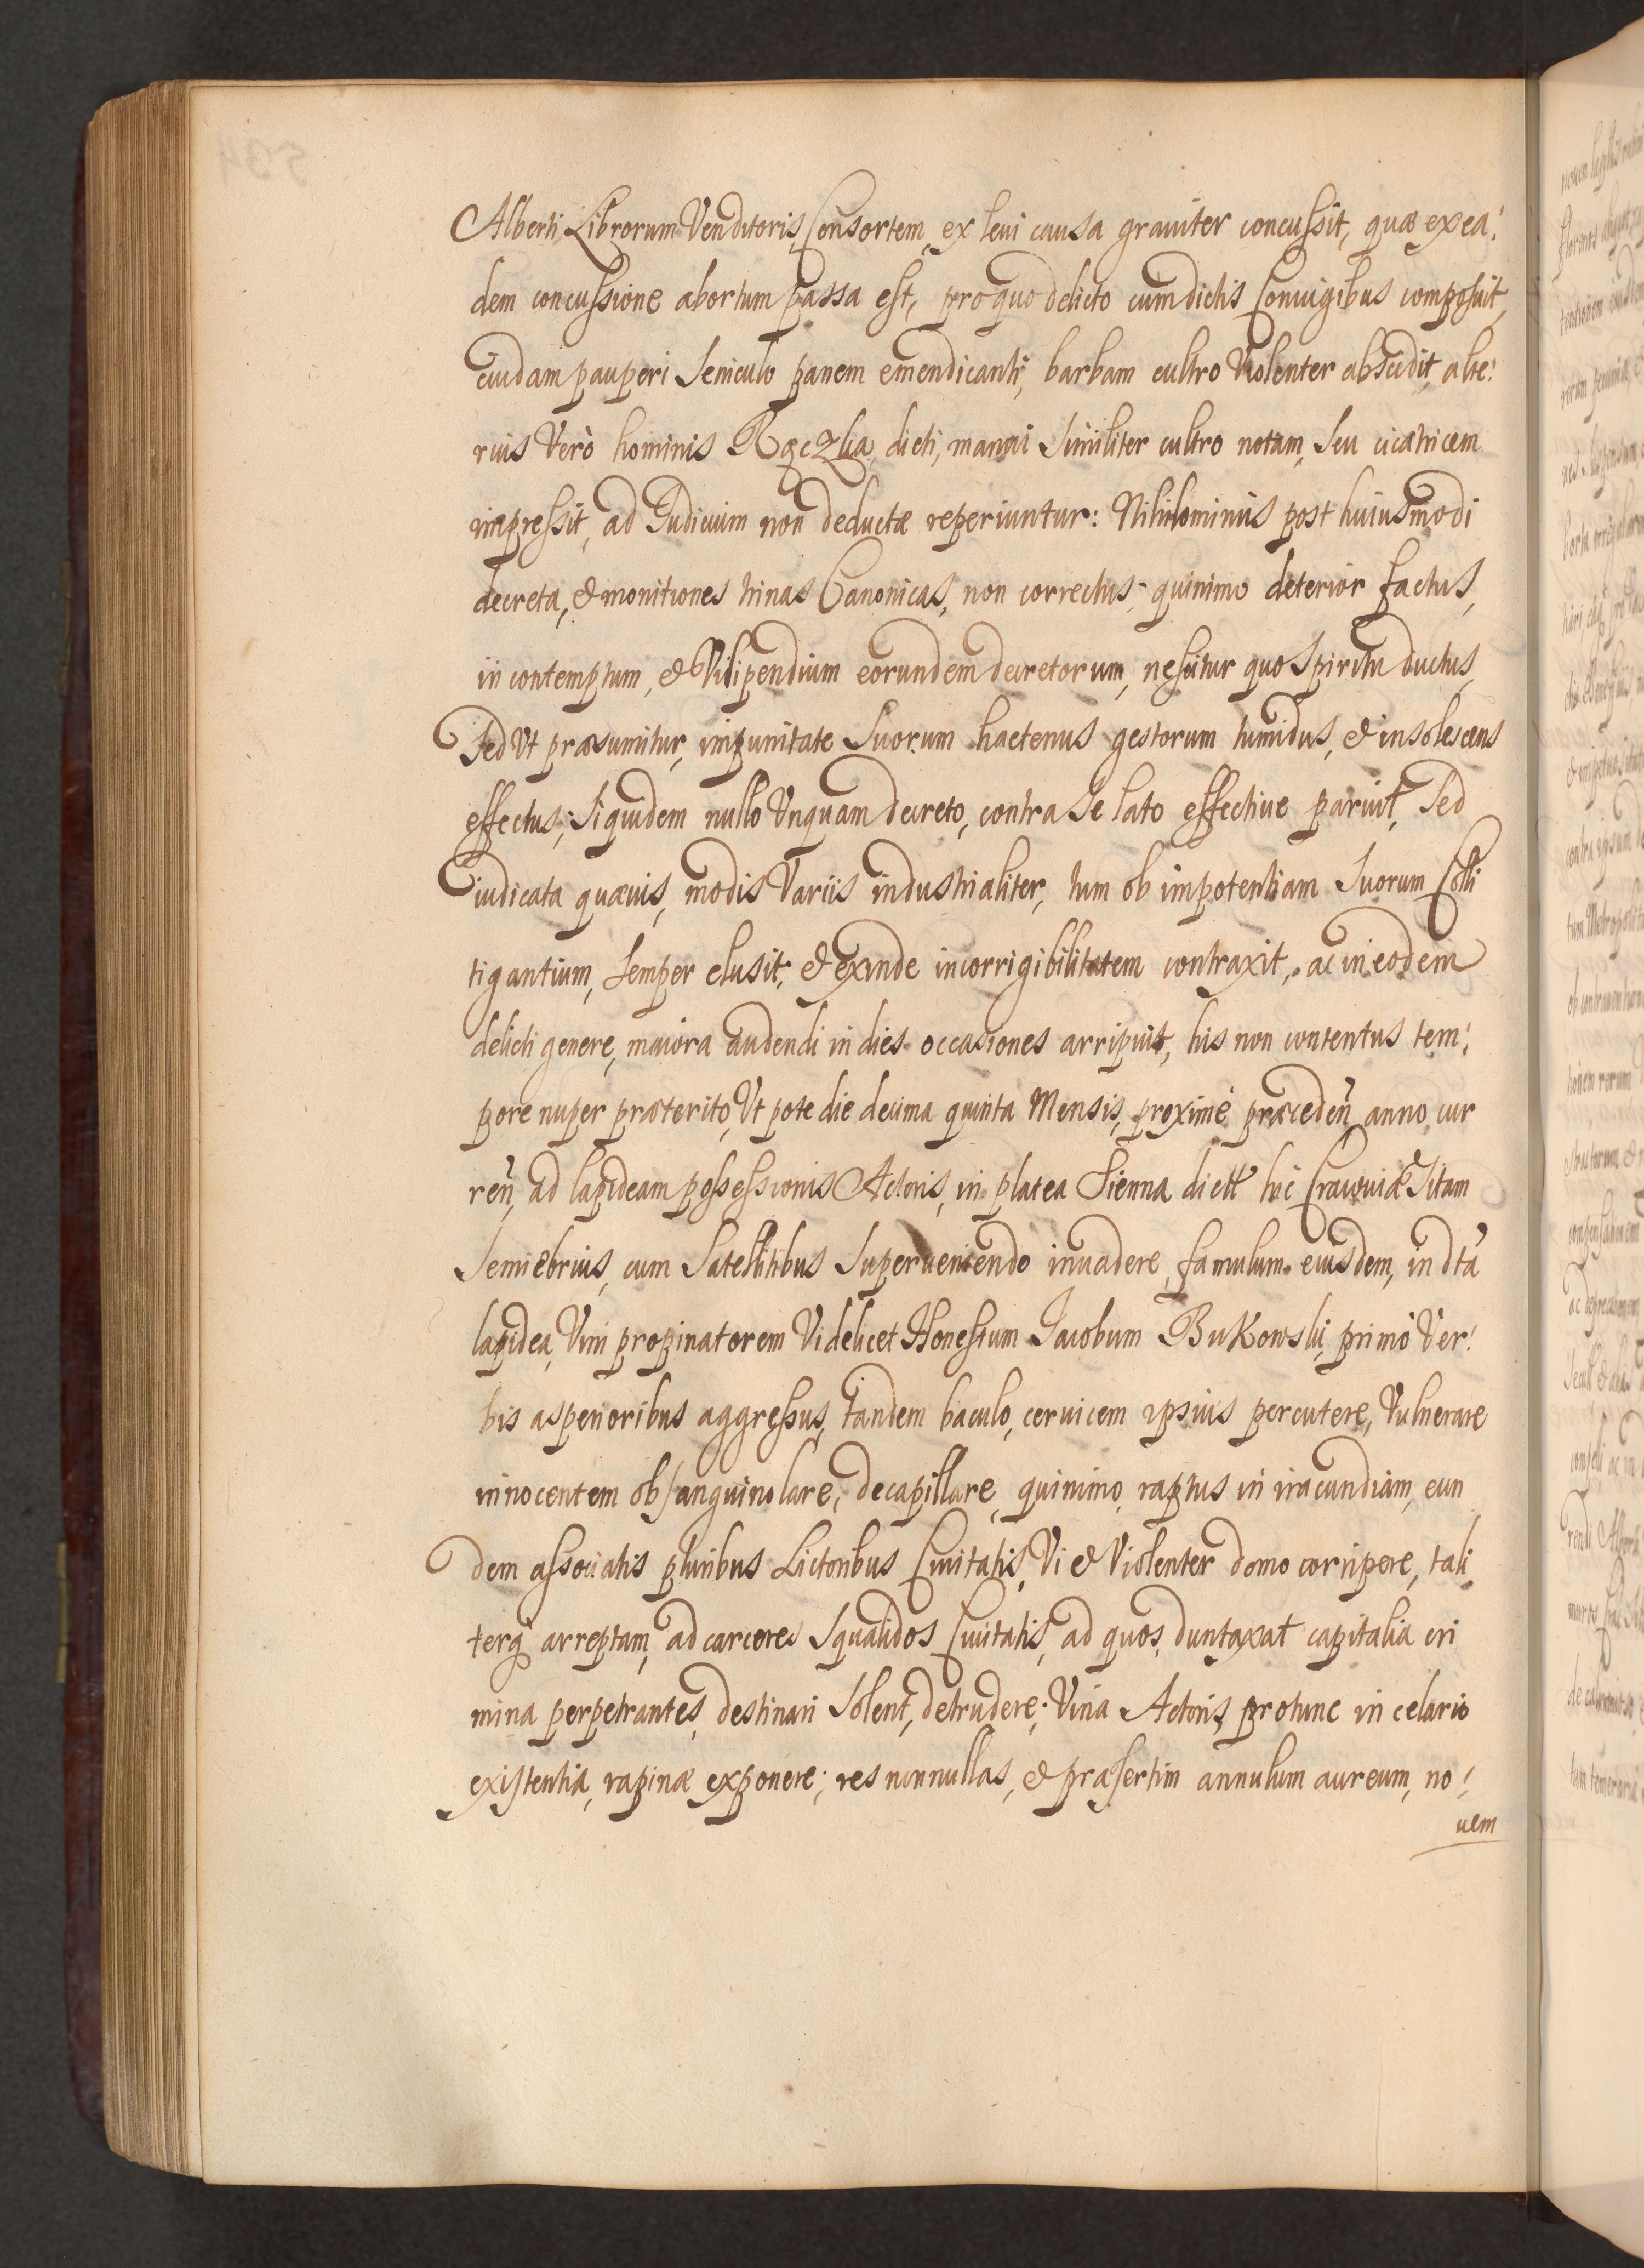 Alberti, Librorum Venditoris, Consortem, ex leui causa grauiter concussit, quæ ex ea:
dem concussione abortum passa est, pro quo delicto cum dictis Coniugibus composuit,
cuidam pauperi Seniculo panem emendicanti, barbam cultro Violenter abscidit, alte:
rius Verò hominis Rączka, dicti, manui Similiter cultro notam, Seu cicatricem
impressit, ad Iudicium non deductæ reperiuntur: Nihilominus post huiusmodi
decreta, & monitiones trinas Canonicas, non correctus, quinimo deterior factus,
in contemptum, & Vilipendium eorundem decretorum, nescitur quo Spiritu ductus,
Sed Vt præsumitur, impunitate Suorum hactenus gestorum tumidus, & insolescens
effectus; Siquidem nullo Vnquam decreto, contra Se lato effectiue paruit, Sed
iudicata quæuis, modis Variis industrialiter, tum ob impotentiam Suorum Colli
tigantium, Semper elusit, & exinde incorrigibilitatem contraxit, ac in eodem
delicti genere, maiora audendi in dies occasiones arripuit, his non contentus tem:
pore nuper præterito, Vt pote die decima quinta Mensis, proximè præceden̄ anno cur
ren̄, ad lapideam possessionis Actoris, in platea Sienna dictt hic Cracouiæ Sitam
Semiebrius, cum Satellitibus Superueniendo inuadere, famulum eiusdem, in dtā
lapidea, Vini propinatorem Videlicet Honestum Iacobum Bukowski, primò Ver:
bis asperioribus aggressus, tandem baculo, ceruicem ipsius percutere, Vulnerare
innocentem obsanguinolare, decapillare, quinimo raptus in iracundiam, eun
dem associatis pluribus Lictoribus Ciuitatis, Vi & Violenter domo corripere, tali
terq́ arreptum, ad carceres Squalidos Ciuitatis, ad quos duntaxat capitalia cri
mina perpetrantes, destinari Solent, detrudere; Vina Actoris protunc in celario
existentia, rapinæ exponere; res nonnullas, & præsertim annulum aureum, no:
uem